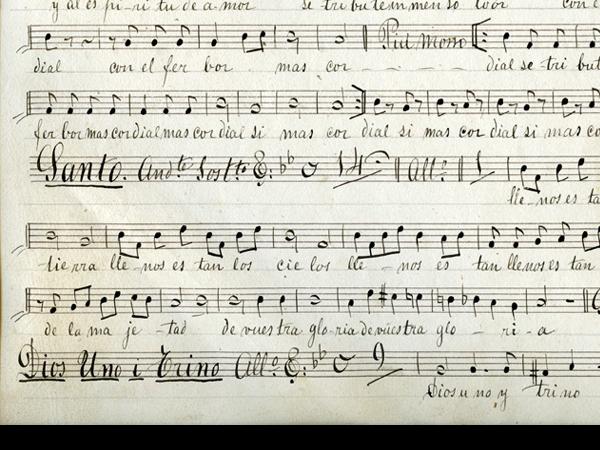 y al es pi-ri tu de a mor se tri bu te in men so loor con e
dial con el fer bor mas cor - - - - dial se tri but
Piu Mosso
fer bor mas cor dial mas cor dial si mas cor dial si mas cor dial si mas co
Santo. Andte Sostto 14 Allo 1
lle-nos es ta
tie rra lle-nos es tan los cie los lle - nos es tan llenos es tan
de la ma je-tad de vues tra glo-ria de vuestra glo - ri-a
Dios Uno i Trino Allo 9
Dios u no y tri no